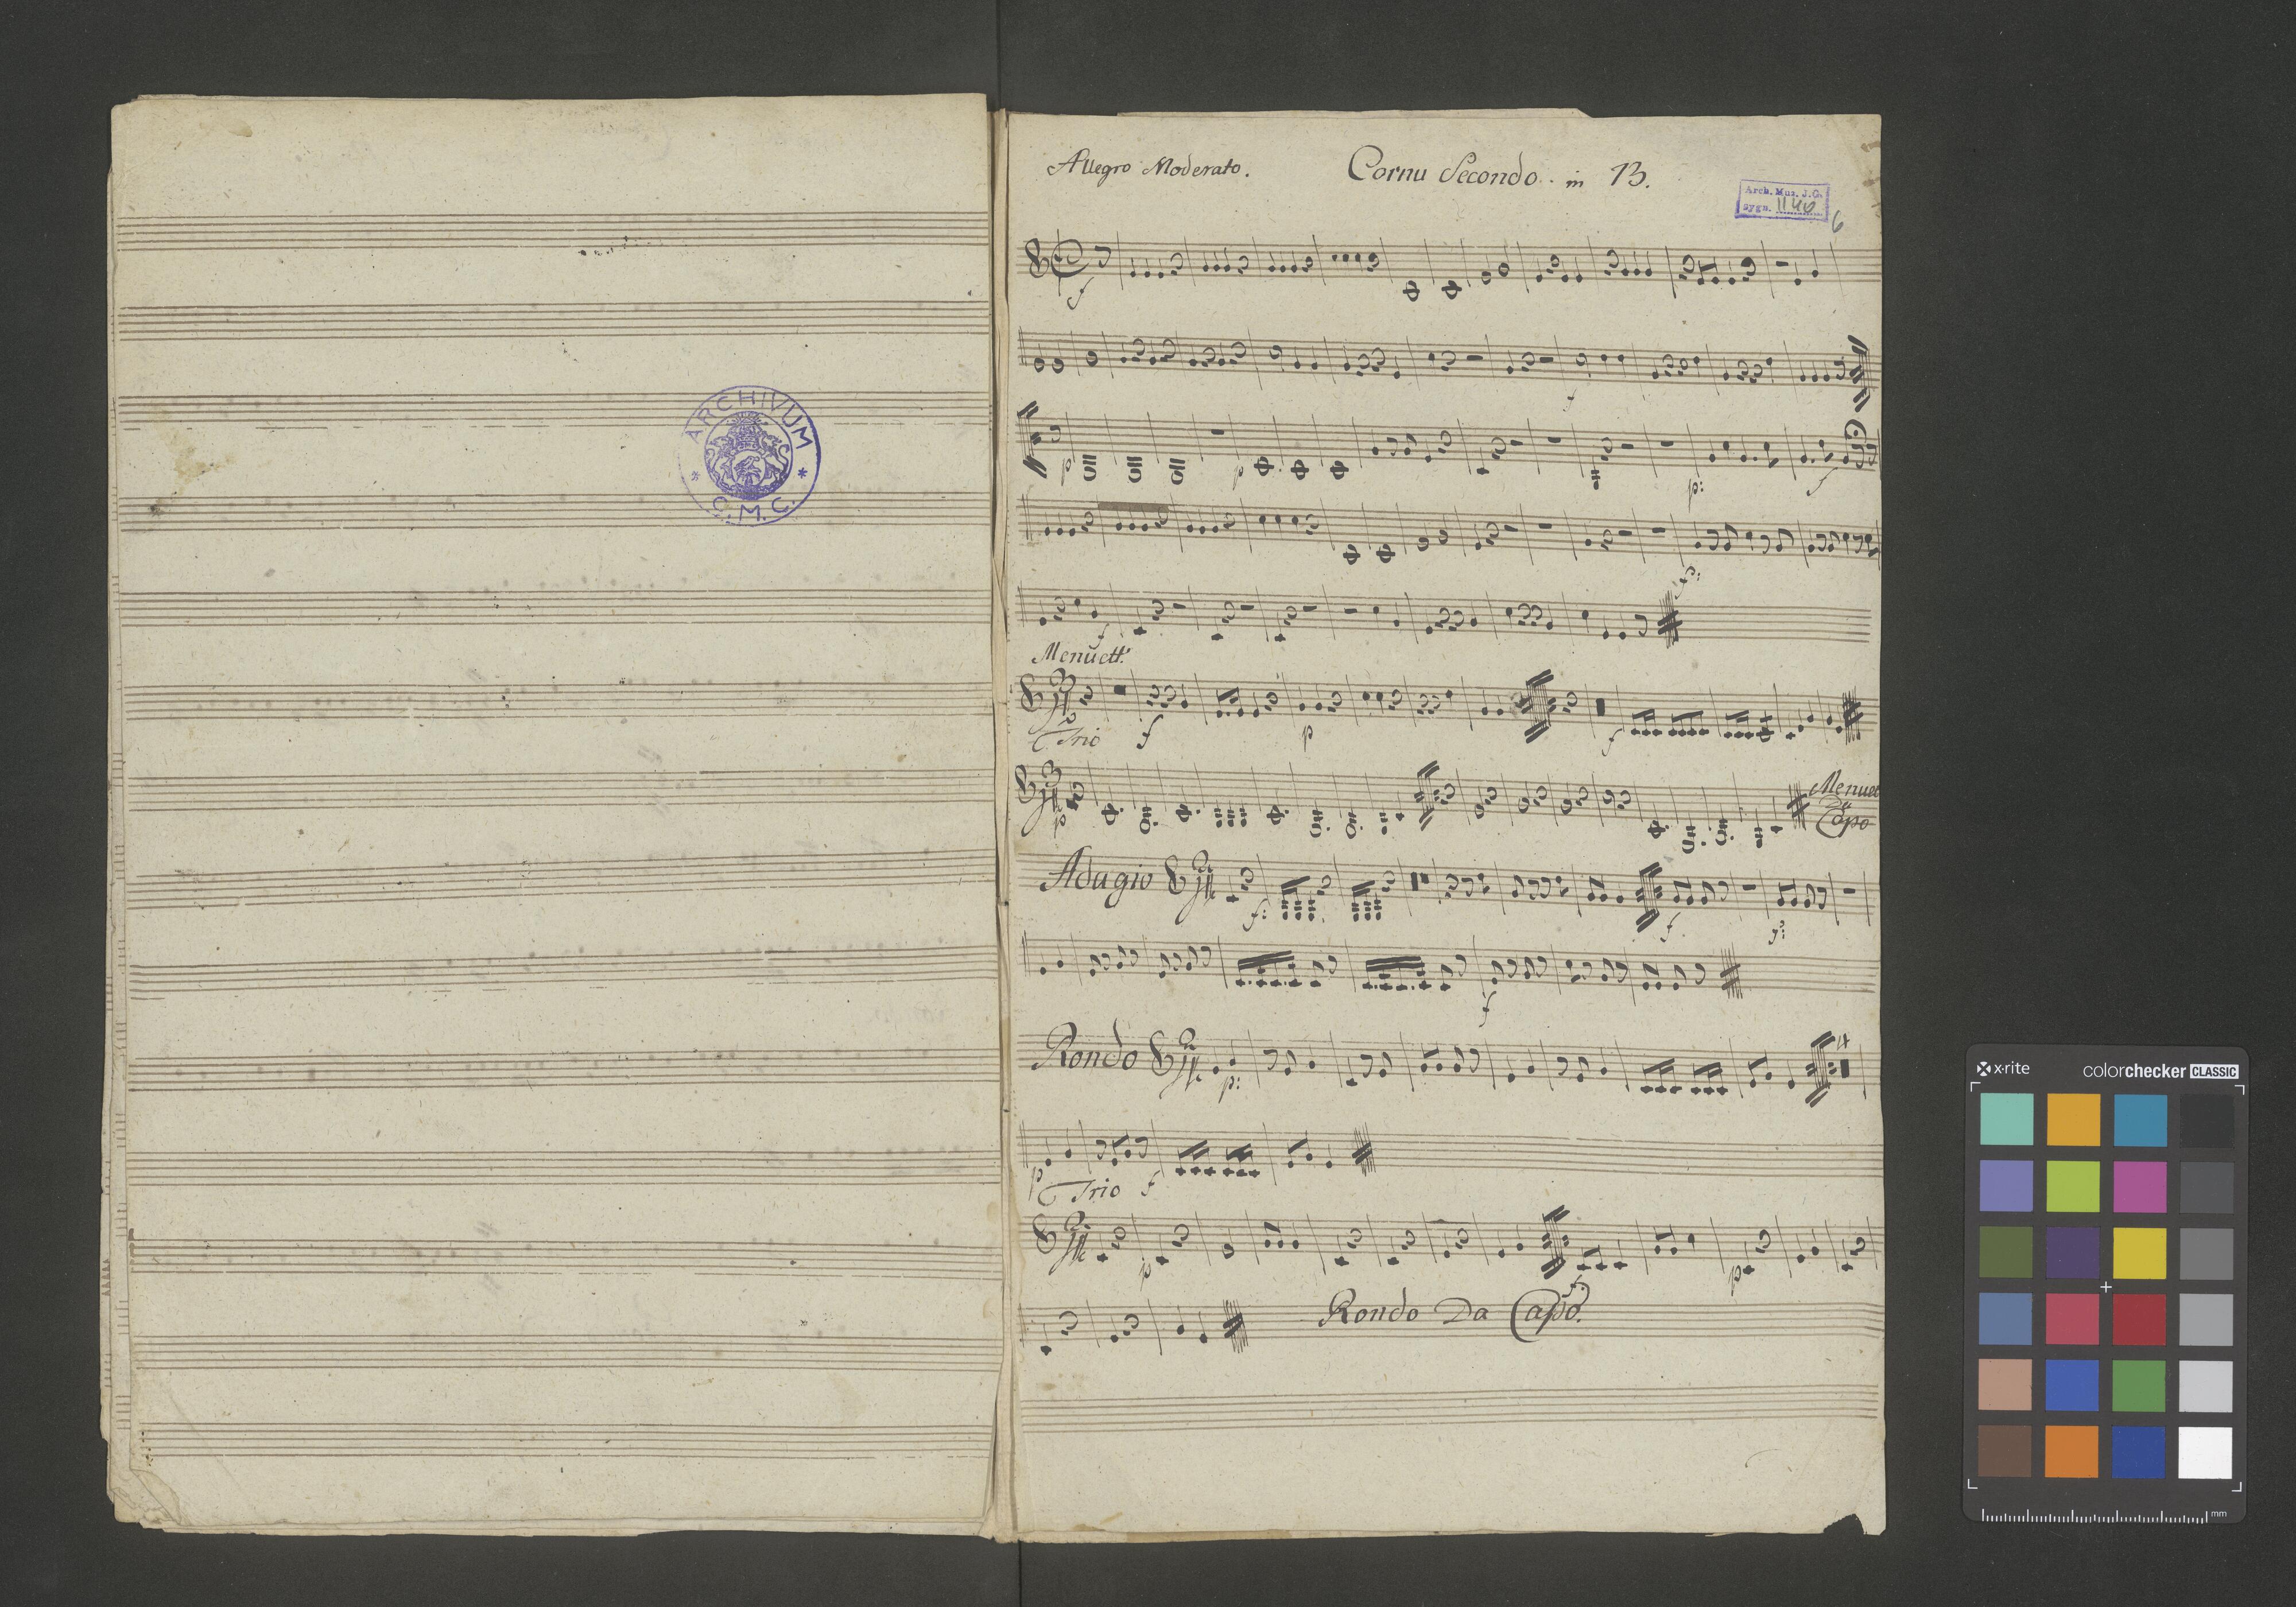 ARCHIVUM
C. M. C.
Allegro Moderato. Cornu Secondo. in B.
Arch. Muz. J.G.
sygn. 1140
6
f
f
p p p: f
f p:
f
Menuett:
3/4 f p f
Trio
3/4 p Menuet
Da
Capo
Adagio 2/4 f: f p:
f
Rondo 2/4 p: 4
p f
Trio
2/4 p f p
Rondo Da Capo.
x-rite colorchecker CLASSIC
mm